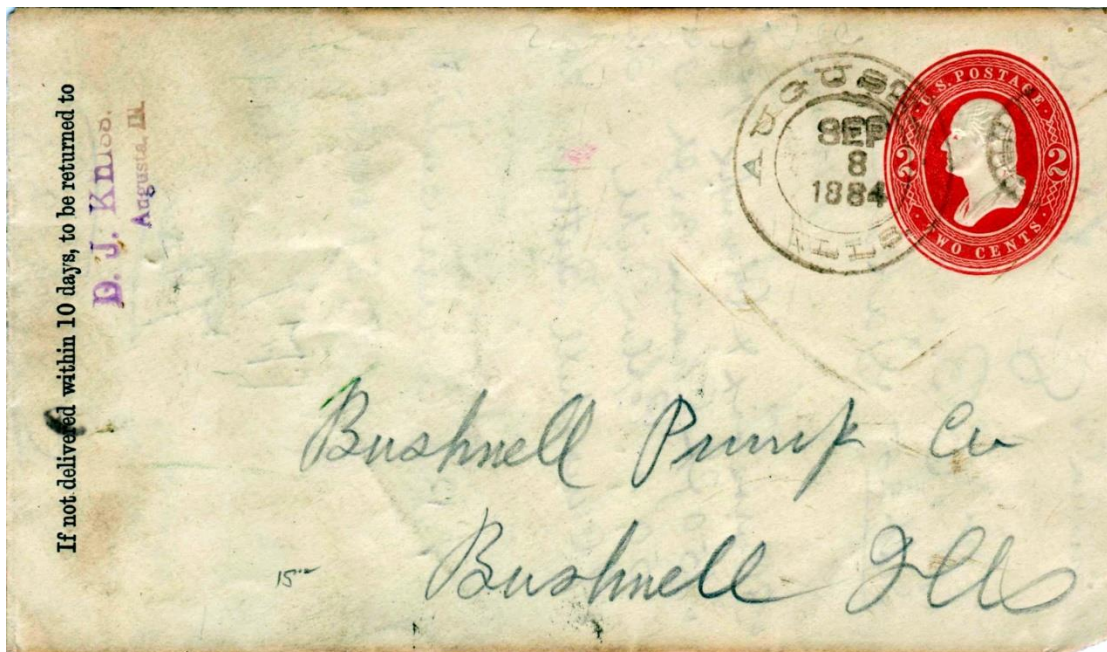 If not delivered within 10 days, to be returned to
D. J.
Augusta, Ill.
AUGUSTA
SEP
8
1884
ILLS
U.S. POSTAGE
2 2
TWO CENTS
Bushnell Pump Co
Bushnell Ills
15